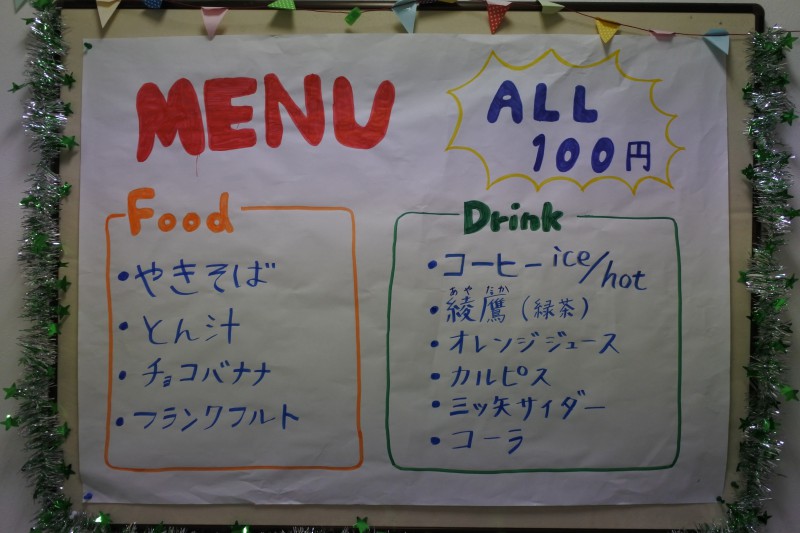 MENU
ALL
100円
Food
・やきそば
・とん汁
・チョコバナナ
・フランクフルト
Drink
・コーヒー ice/hot
あや たか
・綾鷹(緑茶)
・オレンジジュース
・カルピス
・三ツ矢サイダー
・コーラ